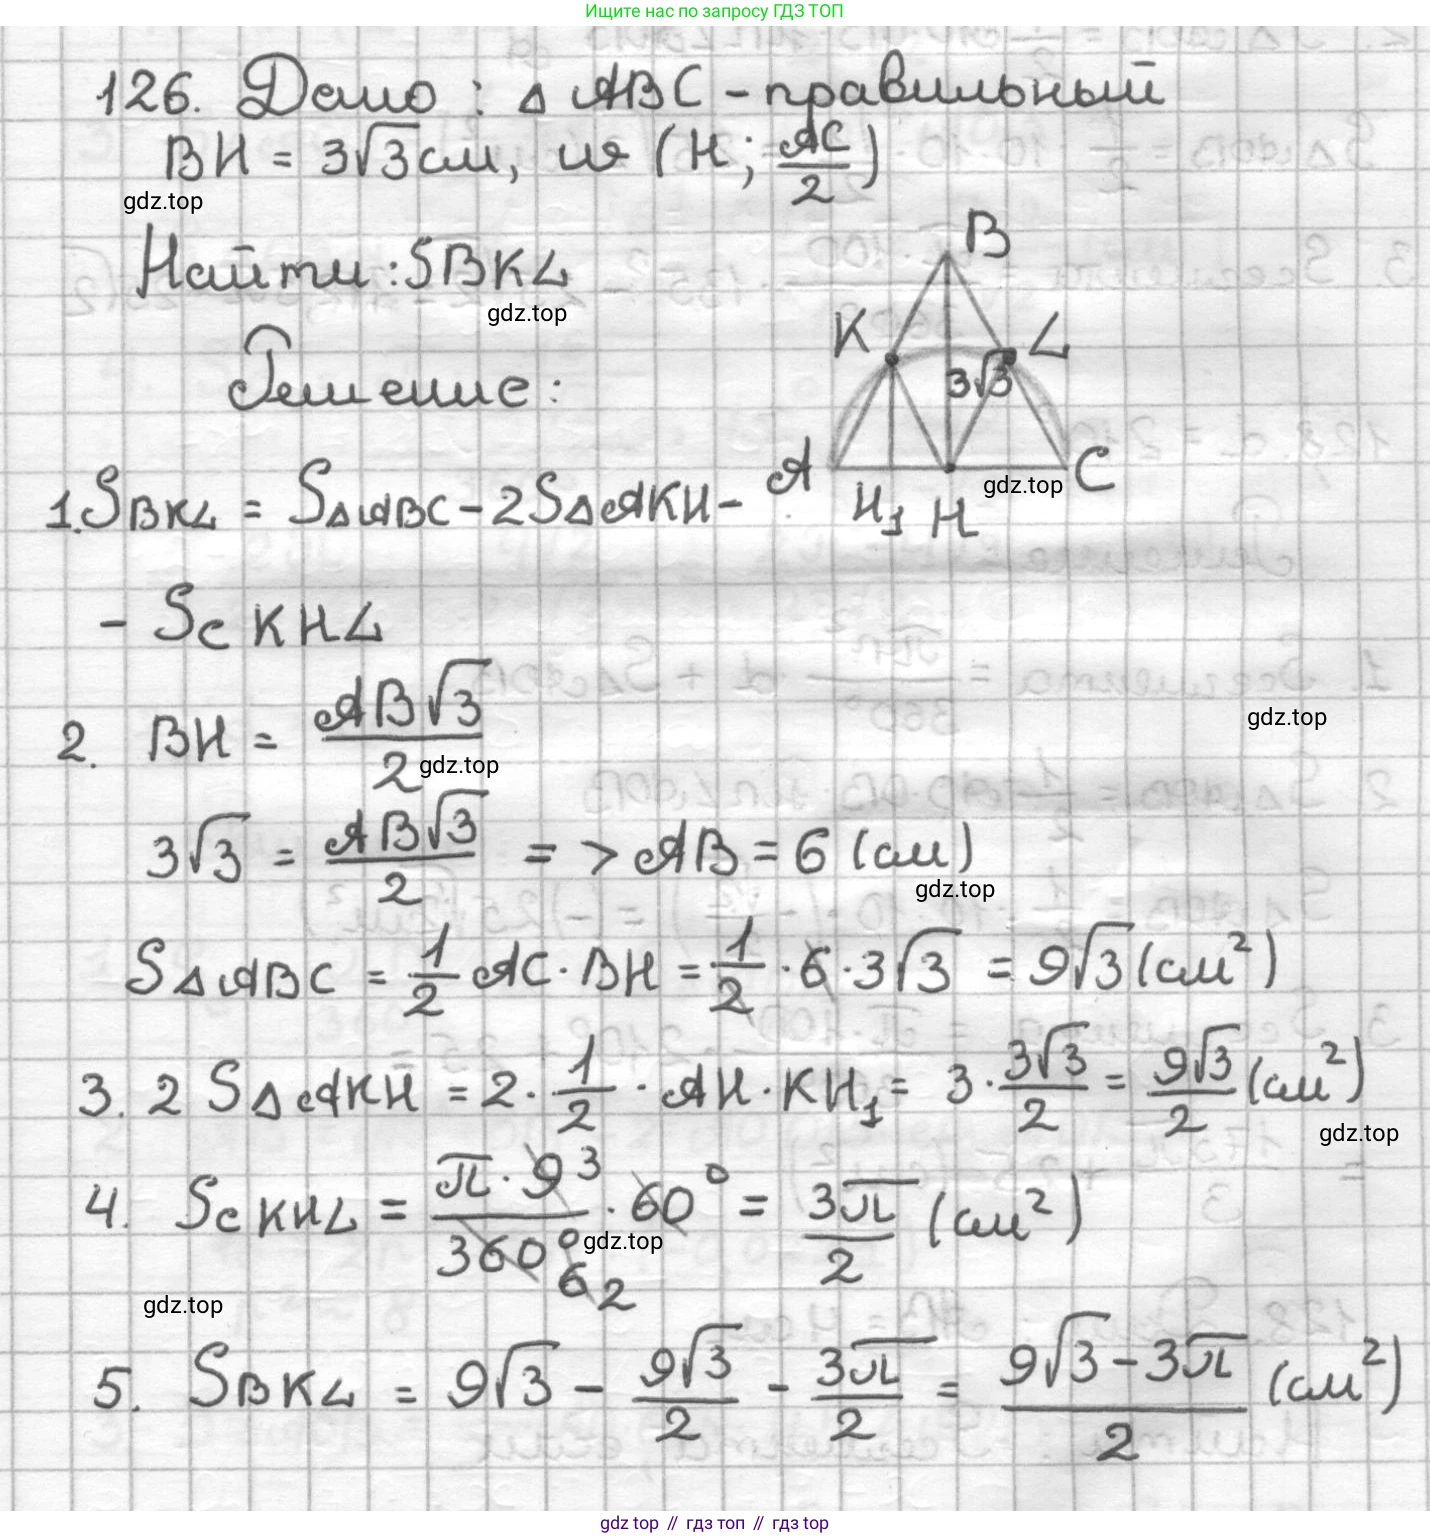 Ищите нас по запросу ГДЗ ТОП
126. Дано: △ ABC - правильный
BH = 3√3 см, и (H; AC/2)
gdz.top
Найти: SBKL
gdz.top
B
K
L
3√3
A
H₁
H
C
gdz.top
Решение:
1. SBKL = S△ABC - 2S△AKH -
- Sc KHL
gdz.top
2. BH = AB√3/2
gdz.top
3√3 = AB√3/2 => AB = 6 (см)
gdz.top
S△ABC = 1/2 AC · BH = 1/2 · 6 · 3√3 = 9√3 (см²)
3. 2 S△AKH = 2 · 1/2 · AH · KH₁ = 3 · 3√3/2 = 9√3/2 (см²)
gdz.top
4. Sc KHL = π · 9 3/360° 6 2 · 60° = 3π/2 (см²)
gdz.top
gdz.top
5. SBKL = 9√3 - 9√3/2 - 3π/2 = 9√3 - 3π/2 (см²)
gdz top // гдз топ // гдз top